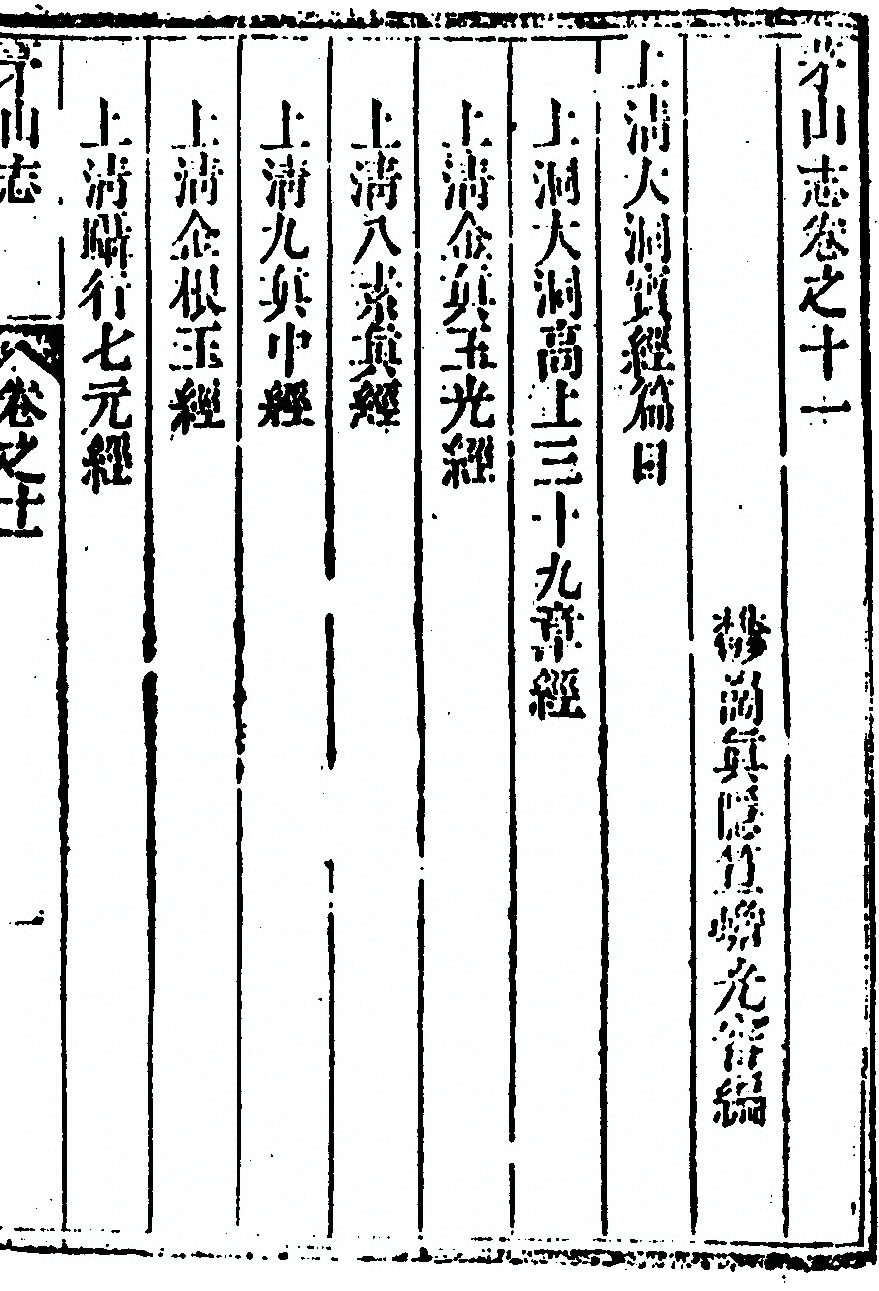 茅山志卷之十一
欎岡眞隱笪蟾光審編
上清大洞寶經篇目
上洞大洞高上三十九章經
上清金眞玉光經
上清八素眞經
上清九眞中經
上清金根玉經
上清躡行七元經
茅山志 卷之十一 一